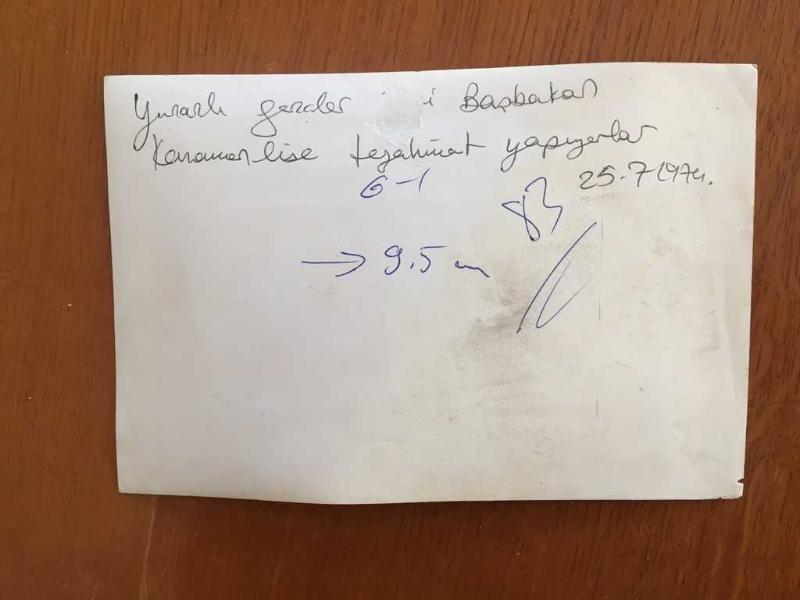 Yunanlı gençler i Başbakan
Karamanlise tezahürat yapıyorlar
25.7.1974.
6-1
→ 9.5 cm